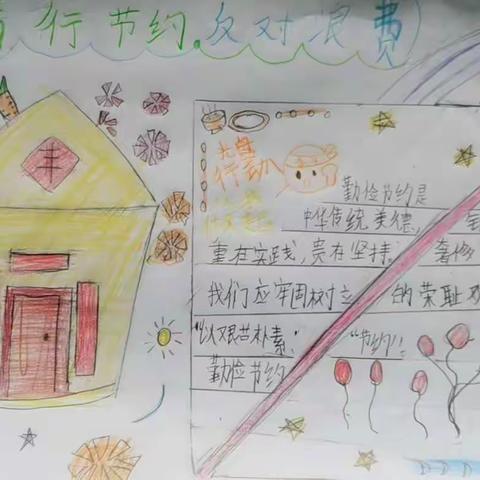 行节约.反对浪费
丰
光盘
行动
勤俭节约是
中华传统美德,
重在实践,贵在坚持。 奢侈
我们应牢固树立 的荣耻
"以艰苦朴素," "节约"!
勤俭节约